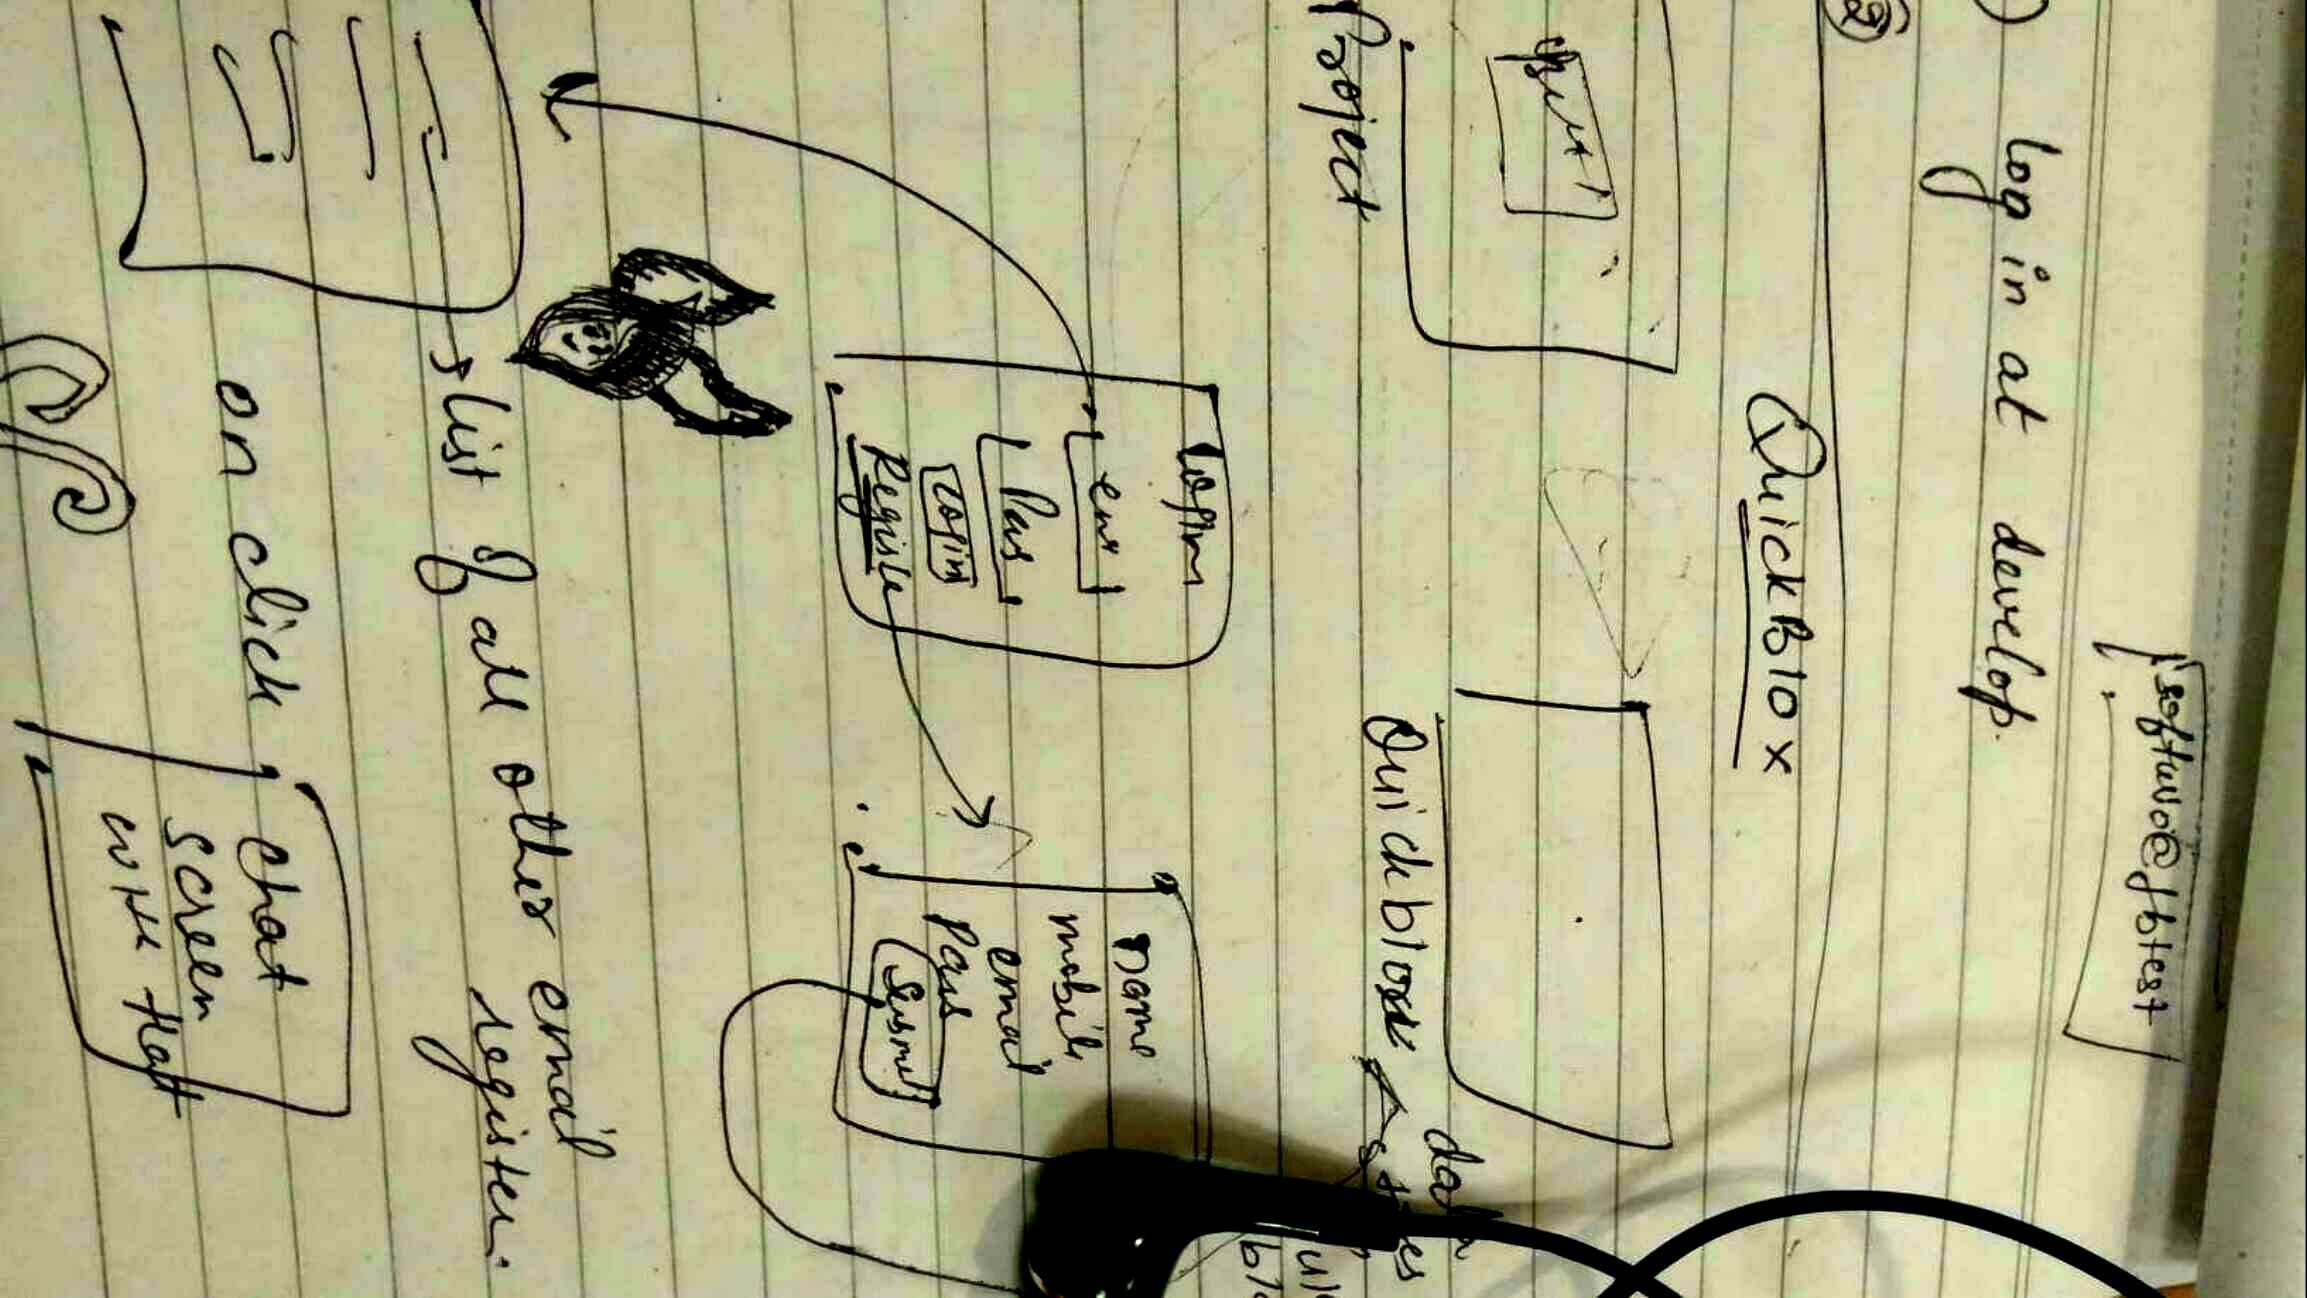 log in at develop.
②
QuickBlox
Project
Quickblox
data
Login
Pas
Login
Registe
name
mobile
email
Pass
list of all other email
register.
on click
chat
screen
with that